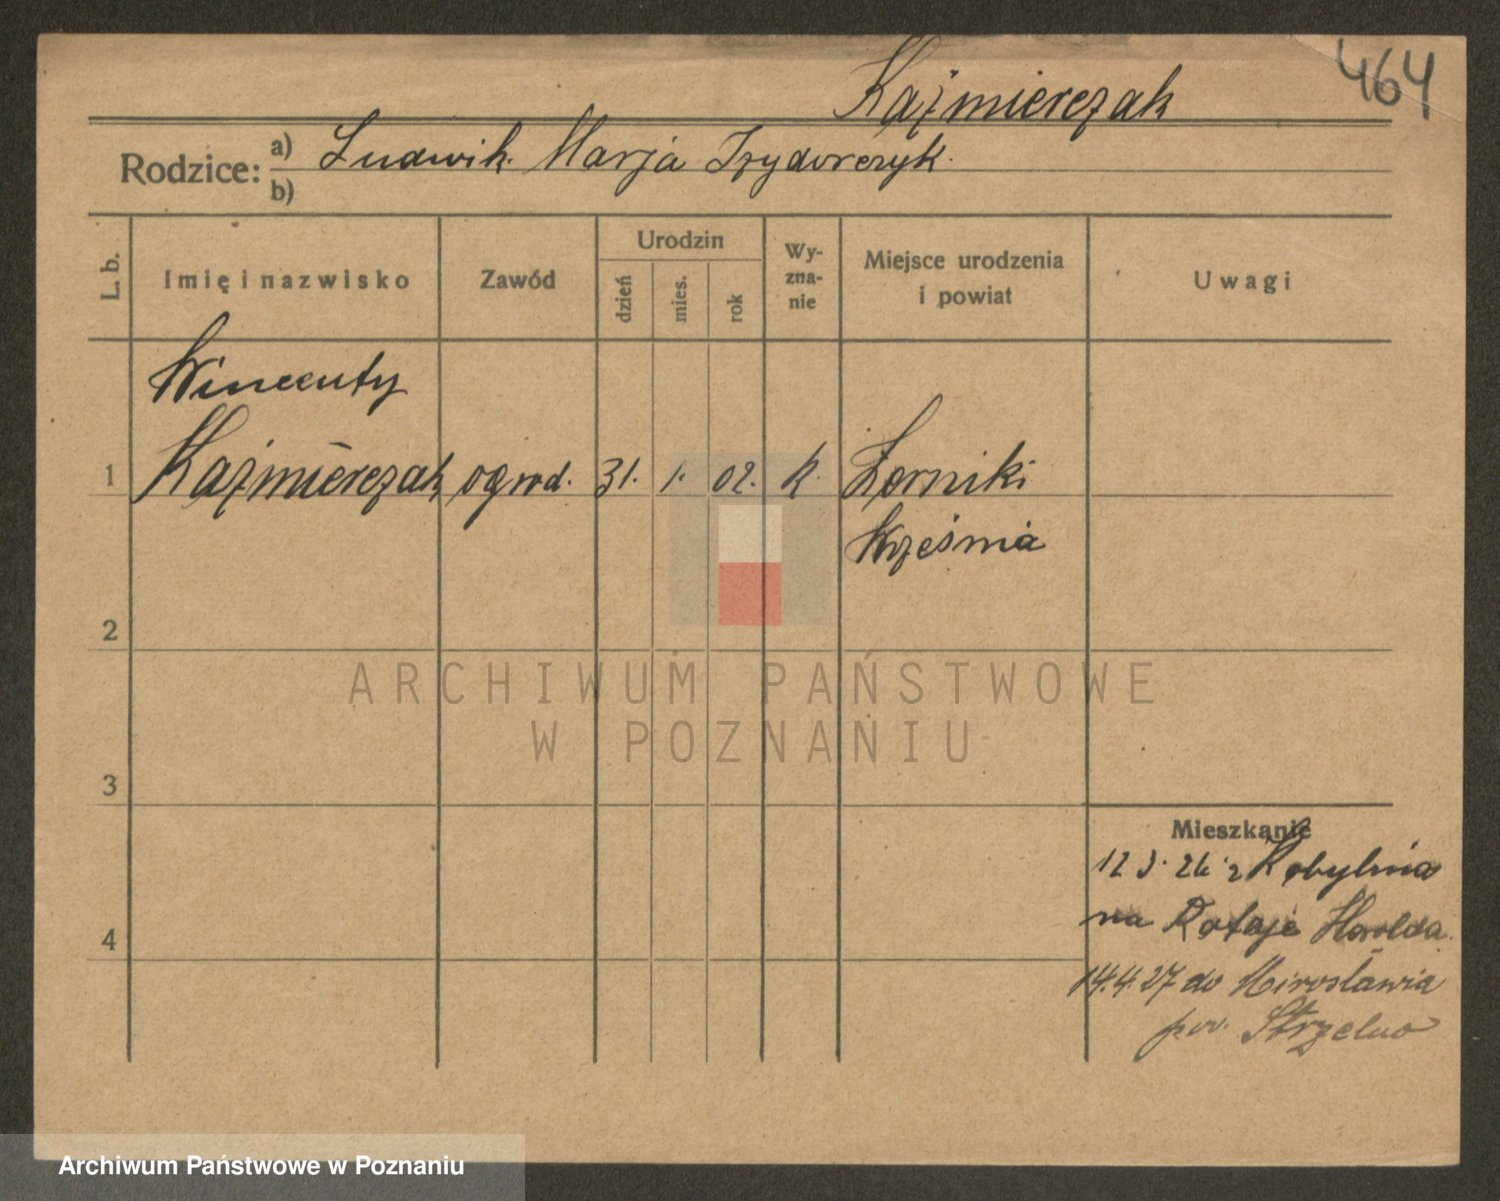 464
Kaźmierczak
Rodzice: a) Ludwik. Marja Izydorczyk.
b)
L. b. Imię i nazwisko Zawód Urodzin dzień mies. rok Wy-zna-nie Miejsce urodzenia i powiat Uwagi
Wincenty
1 Kaźmierczak ogrod. 31. 1. 02. k. Żerniki
Września
2
ARCHIWUM PAŃSTWOWE
W POZNANIU
3
Mieszkanie
26 z Kobylnia
na Rataje
4
14.4.27 do Mirosławia
pow. Strzelno
Archiwum Państwowe w Poznaniu